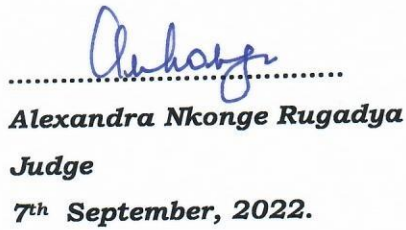 ..............................................
Alexandra Nkonge Rugadya
Judge
7th September, 2022.